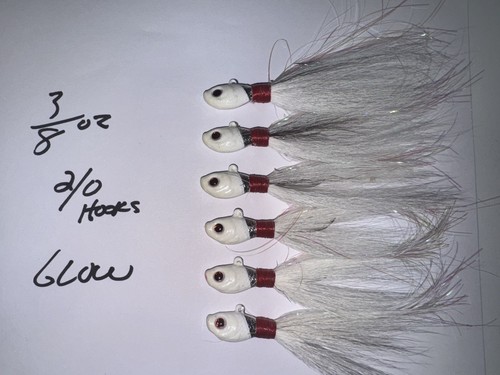 3/8 oz
2/0
Hooks
GLOW